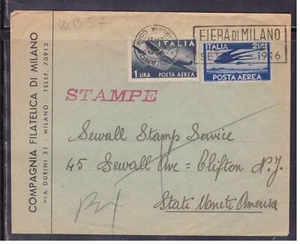 WB57
COMPAGNIA FILATELICA DI MILANO
VIA DURINI 31 MILANO TELEF. 70913
ITALIA
1 LIRA
POSTA AEREA
ITALIA
2 LIRE
POSTA AEREA
FIERA DI MILANO
1946
STAMPE
Sewall Stamp Service
45 Sewall Ave = Clifton N.J.
Stati Uniti America